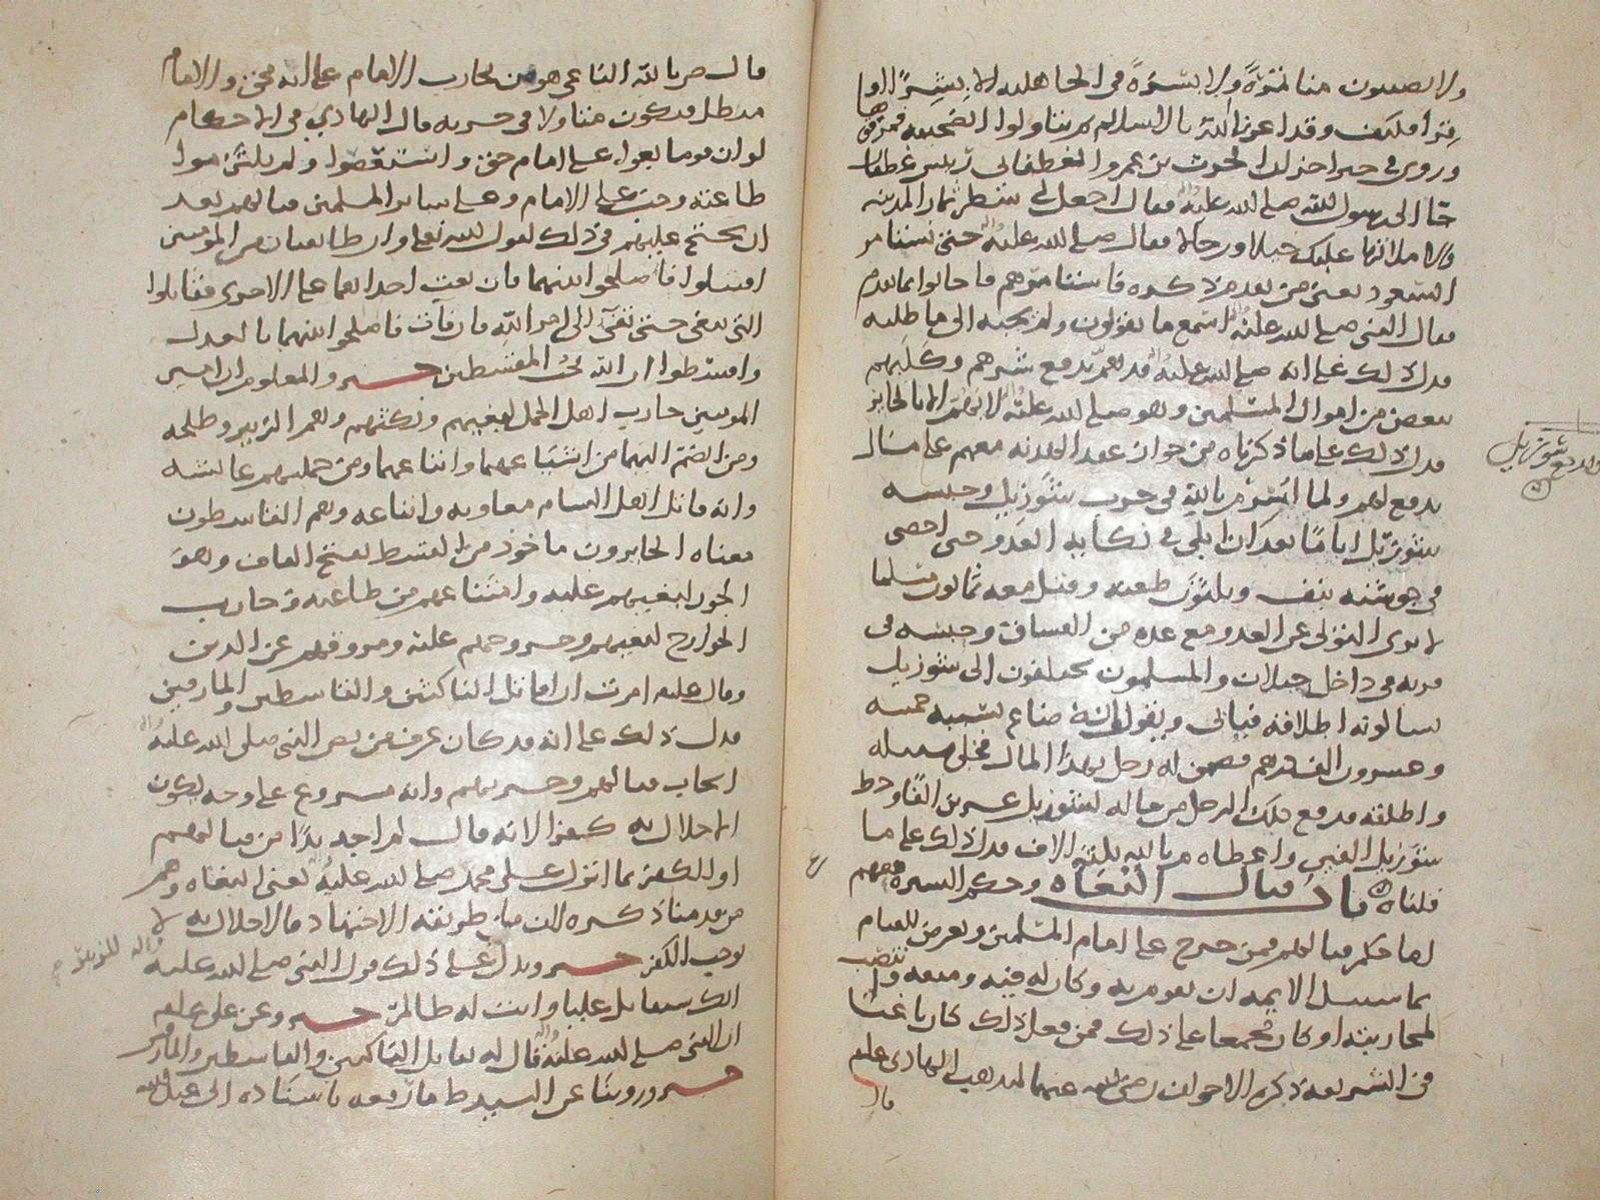 ولا يصيبون منا تمرة ولا بسرة في الجاهلية الا بشرى او
قرى فكيف وقد اعزنا الله بالاسلام ثم تناولوا الصحيفة فمزقوها
وروي في خبر اخر ان الحرث بن عمرو الغطفاني رئيس غطفان
جا الى رسول الله صلى الله عليه وآله فقال اجعل لي شطر ثمار المدينة
والا ملاتها عليك خيلا ورجالا فقال صلى الله عليه وآله حتى نستامر
السعود يعني من تقدم ذكره فاستامرهم فاجابوا بما تقدم
فقال النبي صلى الله عليه وآله اسمع ما يقولون ولم يجبه الى ما طلبه
فدل ذلك على انه صلى الله عليه وآله قد هم بدفع شرهم وكلبهم
ببعض من اموال المسلمين وهو صلى الله عليه وآله لا يهم الا بالجايز
فدل ذلك على ما ذكرناه من جواز عقد الهدنة معهم على مال
يدفع لهم ولما اسر م بالله في حرب شوزيل وحبسه
شوزيل اياما بعد ان ابلى في نكاية العدو حتى احصي
في جوشنه نيف وثلثون طعنة وقتل معه ثمانون مسلما
لا يرى التولي عن العدو مع عدة من الفساق وحبسه في
قرية في داخل جيلان والمسلمون يختلفون الى شوزيل
يسالونه اطلاقه فيابى ويقول انه ضاع بسببه خمسة
وعشرون الف درهم فضمن له رجل بهذا المال فخلى سبيله
واطلقه فدفع ذلك الرجل من ماله لشوزيل عشرين الفا وحط
شوزيل الفين واعطاه م بالله ثلثة الاف فدل ذلك على ما
قلناه باب قتال البغاة وحكم السيرة فيهم
اما حكم قتالهم فمن خرج على امام المسلمين وتعرض للقيام
بما سبيل الايمه ان يقوم به وكان له فئة ومنعة وانتصب
لمحاربته او كان مجمعا على ذلك فمن فعل ذلك كان باغيا
في الشريعة ذكره الاخوان رضي الله عنهما لمذهب الهادي عليم
قال
قال ص بالله الباغي هو من يحارب الامام على انه محق والامام
مبطل فيكون متاولا في حربه قال الهادي في الاحكام
لو ان قوما بغوا على امام حق واستعصوا ولم يلتزموا
طاعته وجب على الامام وعلى ساير المسلمين قتالهم بعد
ان يحتج عليهم في ذلك لقول الله تعلى وان طايفتان من المومنين
اقتتلوا فاصلحوا بينهما فان بغت احداهما على الاخرى فقاتلوا
التي تبغي حتى تفئ الى امر الله فان فآت فاصلحوا بينهما بالعدل
واقسطوا ان الله يحب المقسطين خبر والمعلوم ان امير
المومنين حارب اهل الجمل لبغيهم ونكثهم وهم الزبير وطلحه
ومن انضم اليهما من اشياعهما واتباعهما ومن جملتهم عائشه
وانه قاتل اهل الشام معاويه واتباعه وهم القاسطون
معناه الجايرون ماخوذ من القسط بفتح القاف وهو
الجور لبغيهم عليه وامتناعهم من طاعته وحارب
الخوارج لبغيهم وخروجهم عليه ومروقهم عن الدين
وقال عليه امرت ان اقاتل الناكثين والقاسطين والمارقين
فدل ذلك على انه قد كان عرف من نص النبي صلى الله عليه وآله
ايجاب قتالهم وحربهم وانه مشروع على وجه يكون
الاخلال به كفرا لانه قال لم اجد بدا من قتالهم
او الكفر بما انزل على محمد صلى الله عليه وآله يعني البغاة وهم
من قدمنا ذكره لان ما طريقه الاجتهاد فالاخلال به لا
يوجب الكفر خبر ويدل على ذلك قول النبي صلى الله عليه
وآله للزبير
انك ستقاتل عليا وانت له ظالم خبر وعن علي عليه
ان النبي صلى الله عليه وآله قال له تقاتل الناكثين والقاسطين والمارقين
خبر وروينا عن السيد ط ما رفعه باسناده الى عبد الله